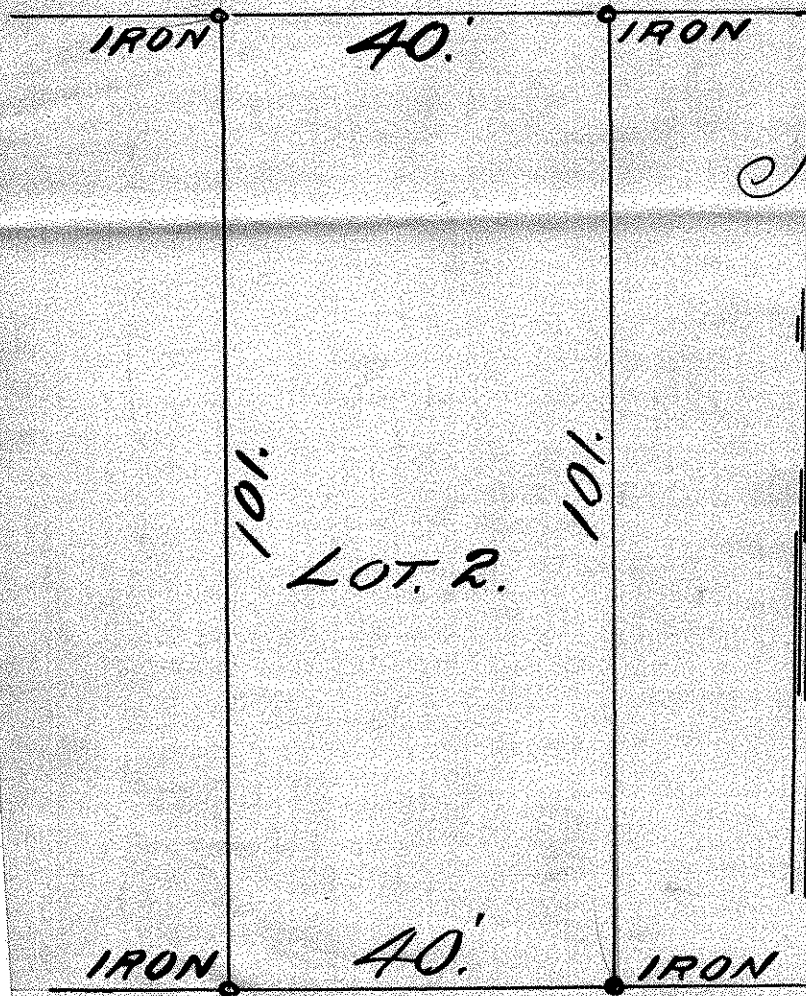 IRON 40.' IRON
101. 101.
LOT. 2.
IRON 40.' IRON